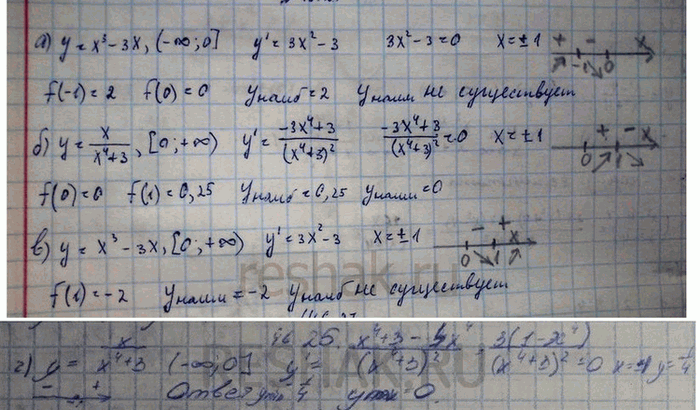 а) y = x³ - 3x, (-∞; 0] y' = 3x² - 3 3x² - 3 = 0 x = ± 1 + - x -1 0
f(-1) = 2 f(0) = 0 Yнаиб = 2 Yнаим не существует
б) y = x/(x⁴+3), [0; +∞) y' = (-3x⁴+3)/(x⁴+3)² (-3x⁴+3)/(x⁴+3)² = 0 x = ± 1 + - x 0 1
f(0) = 0 f(1) = 0,25 Yнаиб = 0,25 Yнаим = 0
в) y = x³ - 3x, [0; +∞) y' = 3x² - 3 x = ± 1 - + x 0 1
reshak.ru
f(1) = -2 Yнаим = -2 Yнаиб не существует
46 25.
г) y = x/(x⁴+3) (-∞; 0] y' = (x⁴+3-4x⁴)/(x⁴+3)² = 3(1-x⁴)/(x⁴+3)² = 0 y = -1/4
RESHAK.RU
- + Ответ